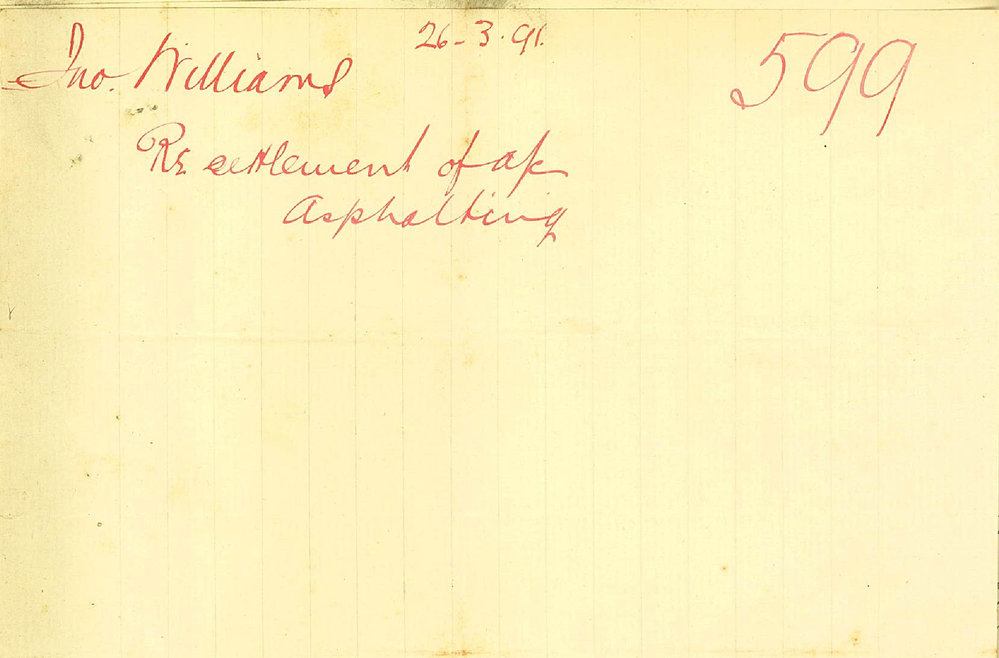 26-3-91.
Jno. Williams
599
Re settlement of a/c
Asphalting